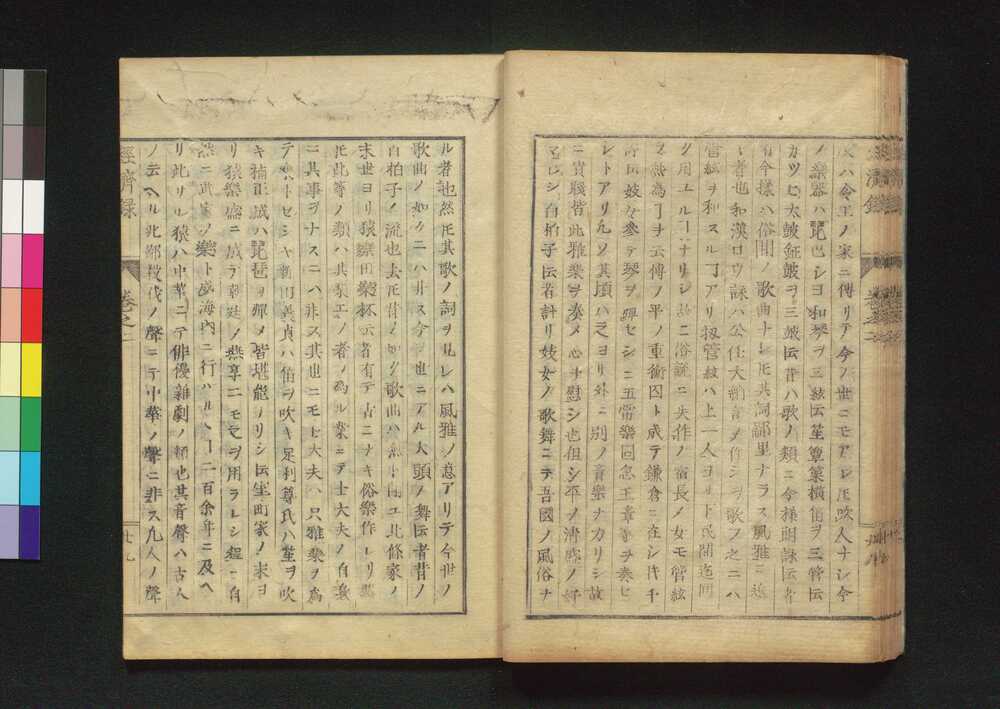 ハ今王ノ家ニ傳リテ今ノ世ニモアレ𪜈吹人ナシ今
ノ樂器ハ琵巴シヨ和琴ヲ三絃伝笙篳篥横笛ヲ三管伝
カツヒ大皷鉦皷ヲ三皷伝昔ハ歌ノ類ニ今様朗詠伝者
今様ハ俗間ノ歌曲ナレ𪜈其詞鄙里ナラス風雅ニ近
者也和漢ロウ詠ハ公任大納言ノ作シヲ歌フ之ニハ
管絃ヲ和スルヿアリ扨管絃ハ上一人ヨリ下民間迄同
ク用ユルナリシ故ニ俗謡ニ失作ノ宿長ノ女モ管絃
ヲ為了ヲ云傳ノ平ノ重衡囚ト成テ鎌倉ニ在シ時千
妓女參テ琴ヲ弾セシニ五常樂回忽王章等ヲ奏セ
レトアリ凡ソ其頃ハ之ヨリ外ニ別ノ音樂ナカリシ故
ニ貴賤皆此雅樂ヲ奏メ心ヲ慰シ也但シ平ノ清盛ノ好
レシ白拍子伝者計リ妓女ノ歌舞ニテ吾國ノ風俗ナ
ル者也然𪜈其歌ノ詞ヲ見レハ風雅ノ意アリテ今世ノ
歌曲ノ如クニハ非ス今世ニアル大頭ノ舞伝者昔ノ
白拍子ノ流也去𪜈昔ノ如ク歌曲ハ無下同ユ北條家ノ
末世ヨリ猿樂田樂杯云者有テ古ニナキ俗樂作レリ
𪜈此等ノ類ハ其家工ノ者ノ為ル業ニテ士大夫ノ自
ニ其事ヲナスニハ非ス其世ニモ士大夫ハ只雅樂ヲ為
テセシヤ新田義貞ハ笛ヲ吹キ足利尊氏ハ笙ヲ吹
キ楠正成ハ琵琶ヲ弾メ皆堪能ナリシ伝室町家ノ末ヨ
リ猿樂盛ニ成テ朝廷ノ燕享ニモ之ヲ用ラレシ程ニ自
然ニ武家ノ樂ト成海内ニ行ハルヽ一二百余年ニ及ヘ
リ此サル猿ハ中華ニテ俳優雜劇ノ類也其音聲ハ古人
ノ云ヘル北鄙殺伐ノ聲ニテ中華ノ聲ニ非ス凡人ノ聲
經濟録
卷之二
廿九